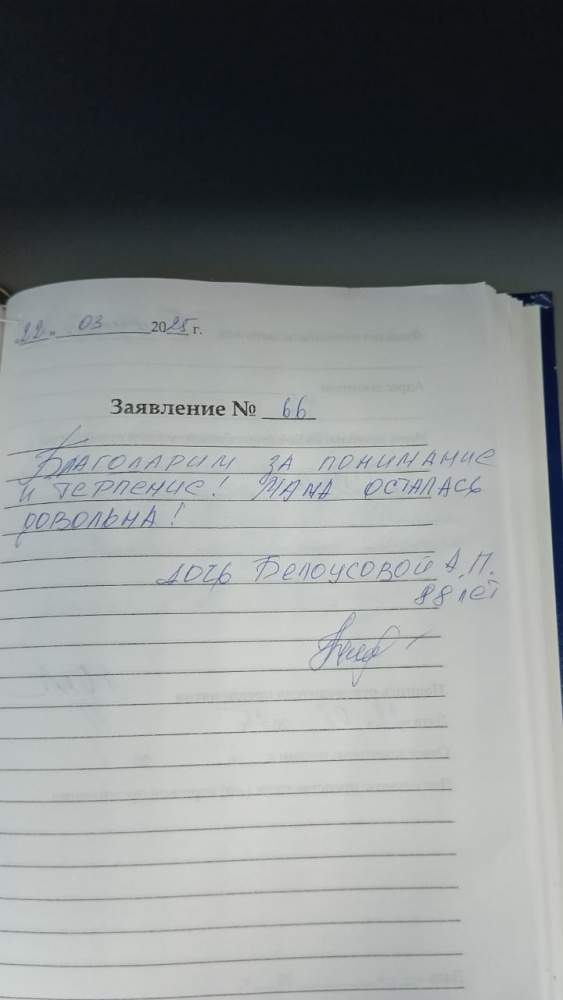 "22" 03 2025 г.
Заявление № 66
Благодарим за понимание
и терпение! Мама осталась
довольна!
дочь Белоусовой А.П.
88 лет